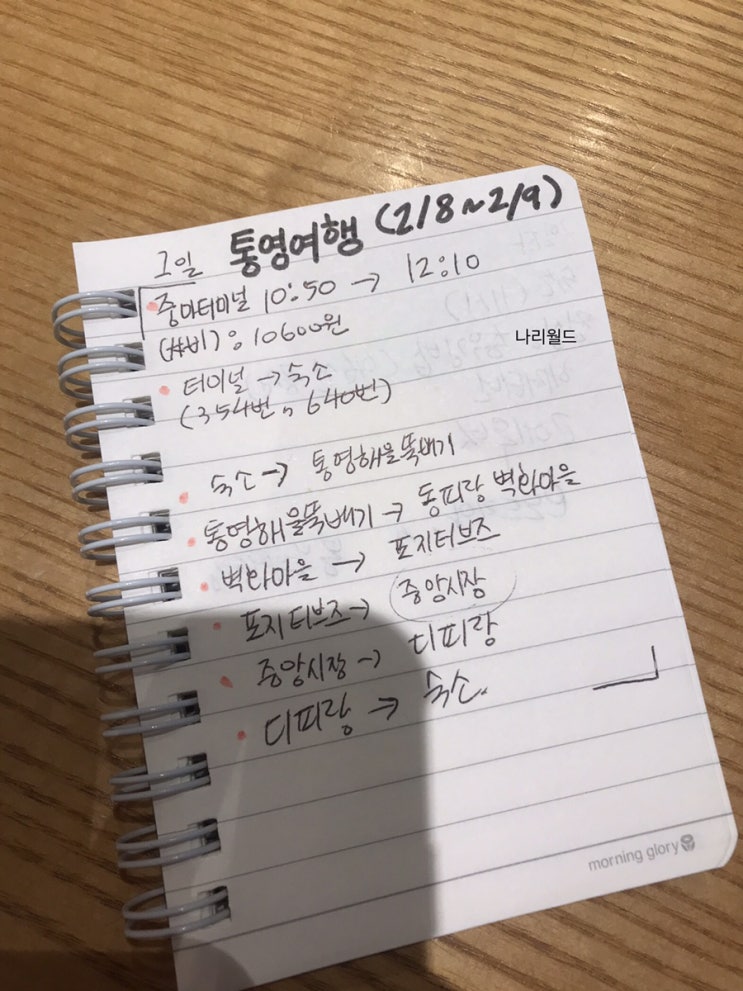 그일 통영여행 (2/8~2/9)
중마터미널 10:50 → 12:10
(버스비) : 10600원
나리월드
터미널 → 숙소
(354번, 640번)
숙소 → 통영해울뚝배기
통영해울뚝배기 → 동피랑 벽화마을
벽화마을 → 포지티브즈
포지티브즈 → 중앙시장
중앙시장 → 디피랑
디피랑 → 숙소.
morning glory